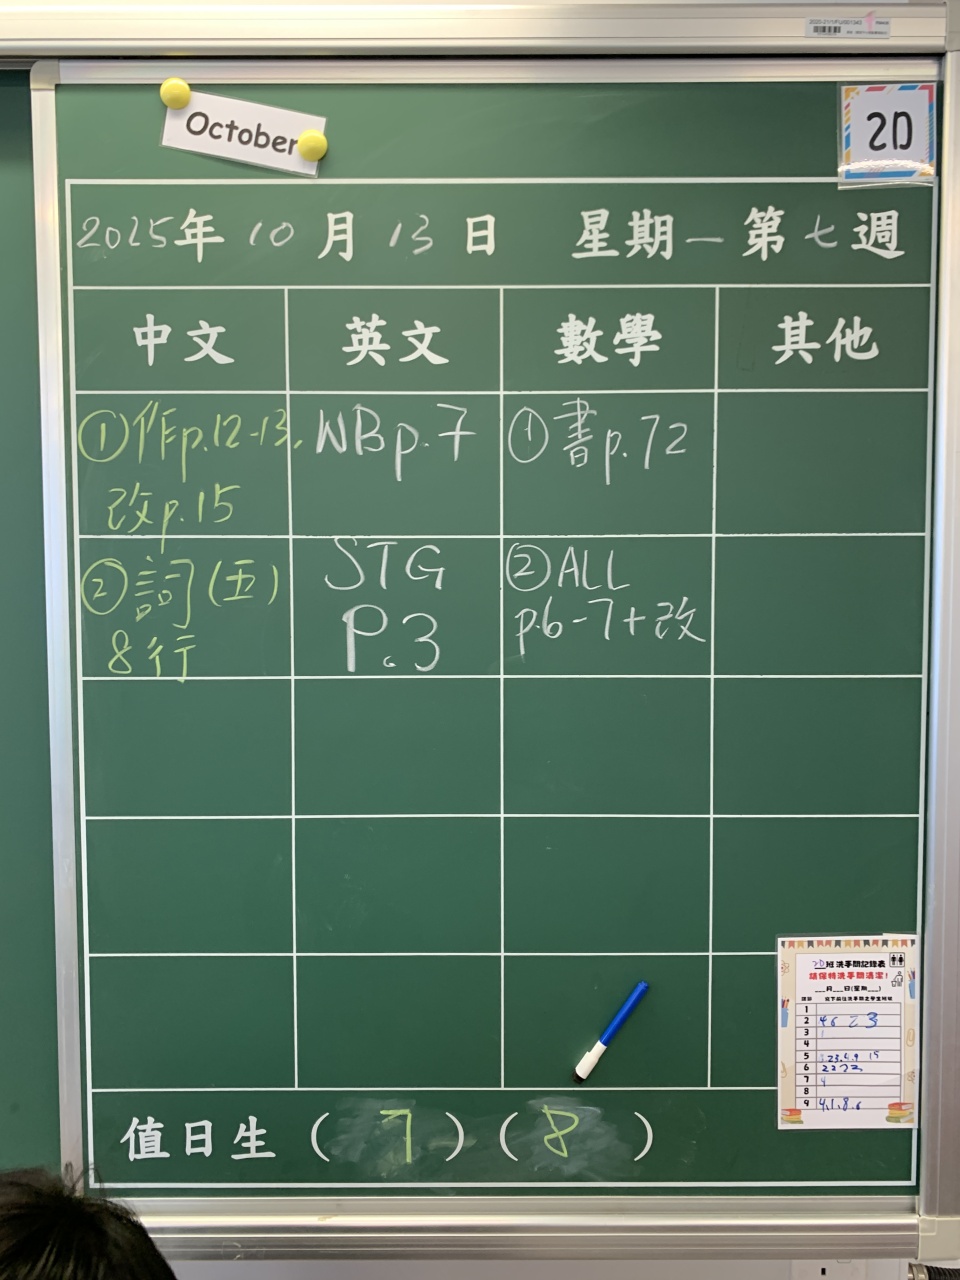 October
2D
2025年10月13日 星期一第七週
中文 英文 數學 其他
①作p.12-13,
改p.15
WBp.7
①書p.72
②詞(五)
8行
STG
P.3
②ALL
p.6-7+改
2D班洗手間記錄表
請保持洗手間清潔!
___月___日(星期___)
1
2 46 23
3
4
5
6
7 4
8
9 4.1.8.6
值日生(7)(8)